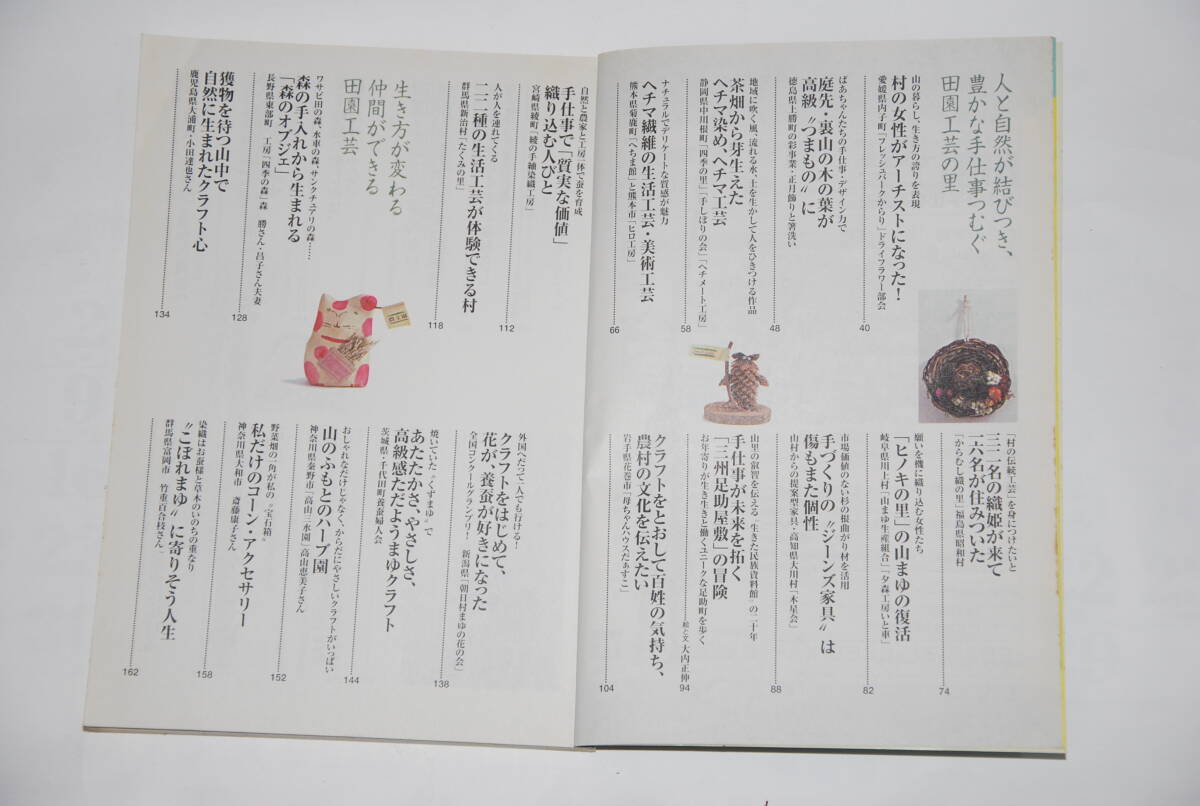 人と自然が結びつき、
豊かな手仕事つむぐ
田園工芸の里
山の暮らし、生き方の誇りを表現
村の女性がアーチストになった！
愛媛県内子町「フレッシュパークからり」ドライフラワー部会
40
ばあちゃんたちの手仕事・デザイン力で
庭先・裏山の木の葉が
高級〝つまもの〟に
徳島県上勝町の彩事業・正月飾りと箸洗い
48
地域に吹く風、流れる水、土を生かして人をひきつける作品
茶畑から芽生えた
ヘチマ染め、ヘチマ工芸
静岡県中川根町「四季の里」「手しぼりの会」「ヘチメート工房」
58
ナチュラルでデリケートな質感が魅力
ヘチマ繊維の生活工芸・美術工芸
熊本県菊鹿町「へちま館」と熊本市「ヒロ工房」
66
「村の伝統工芸」を身につけたいと
三二名の織姫が来て
一六名が住みついた
「からむし織の里」福島県昭和村
74
願いを機に織り込む女性たち
「ヒノキの里」の山まゆの復活
岐阜県川上村「山まゆ生産組合」「夕森工房いと車」
82
市場価値のない杉の根曲がり材を活用
手づくりの〝ジーンズ家具〟は
傷もまた個性
山村からの提案型家具・高知県大川村「木星会」
88
山里の叡智を伝える〝生きた民族資料館〟の二十年
手仕事が未来を拓く
「三州足助屋敷」の冒険
お年寄りが生き生きと働くユニークな足助町を歩く
絵と文 大内正伸
94
クラフトをとおして百姓の気持ち、
農村の文化を伝えたい
岩手県花巻市「母ちゃんハウスだぁすこ」
104
自然と農家と工房一体で蚕を育成
手仕事で「質実な価値」
織り込む人びと
宮崎県綾町「綾の手紬染織工房」
112
人が人を連れてくる
二二種の生活工芸が体験できる村
群馬県新治村「たくみの里」
118
生き方が変わる
仲間ができる
田園工芸
ワサビ田の森、水車の森、サンクチュアリの森……
森の手入れから生まれる
「森のオブジェ」
長野県東部町 工房「四季の森」森 勝さん・昌子さん夫妻
128
獲物を待つ山中で
自然に生まれたクラフト心
鹿児島県大浦町・小田達也さん
134
外国へだって一人でも行ける！
クラフトをはじめて、
花が、養蚕が好きになった
全国コンクールグランプリ！ 新潟県「朝日村まゆの花の会」
138
焼いていた〝くずまゆ〟で
あたたかさ、やさしさ、
高級感ただようまゆクラフト
茨城県・千代田町養蚕婦人会
144
おしゃれなだけじゃなく、からだにやさしいクラフトがいっぱい
山のふもとのハーブ園
神奈川県秦野市「高山三水園」高山恵美子さん
152
野菜畑の一角が私の〝宝石箱〟
私だけのコーン・アクセサリー
神奈川県大和市 斎藤康子さん
158
染織はお蚕様と草木のいのちの重なり
〝こぼれまゆ〟に寄りそう人生
群馬県富岡市 竹重百合枝さん
162